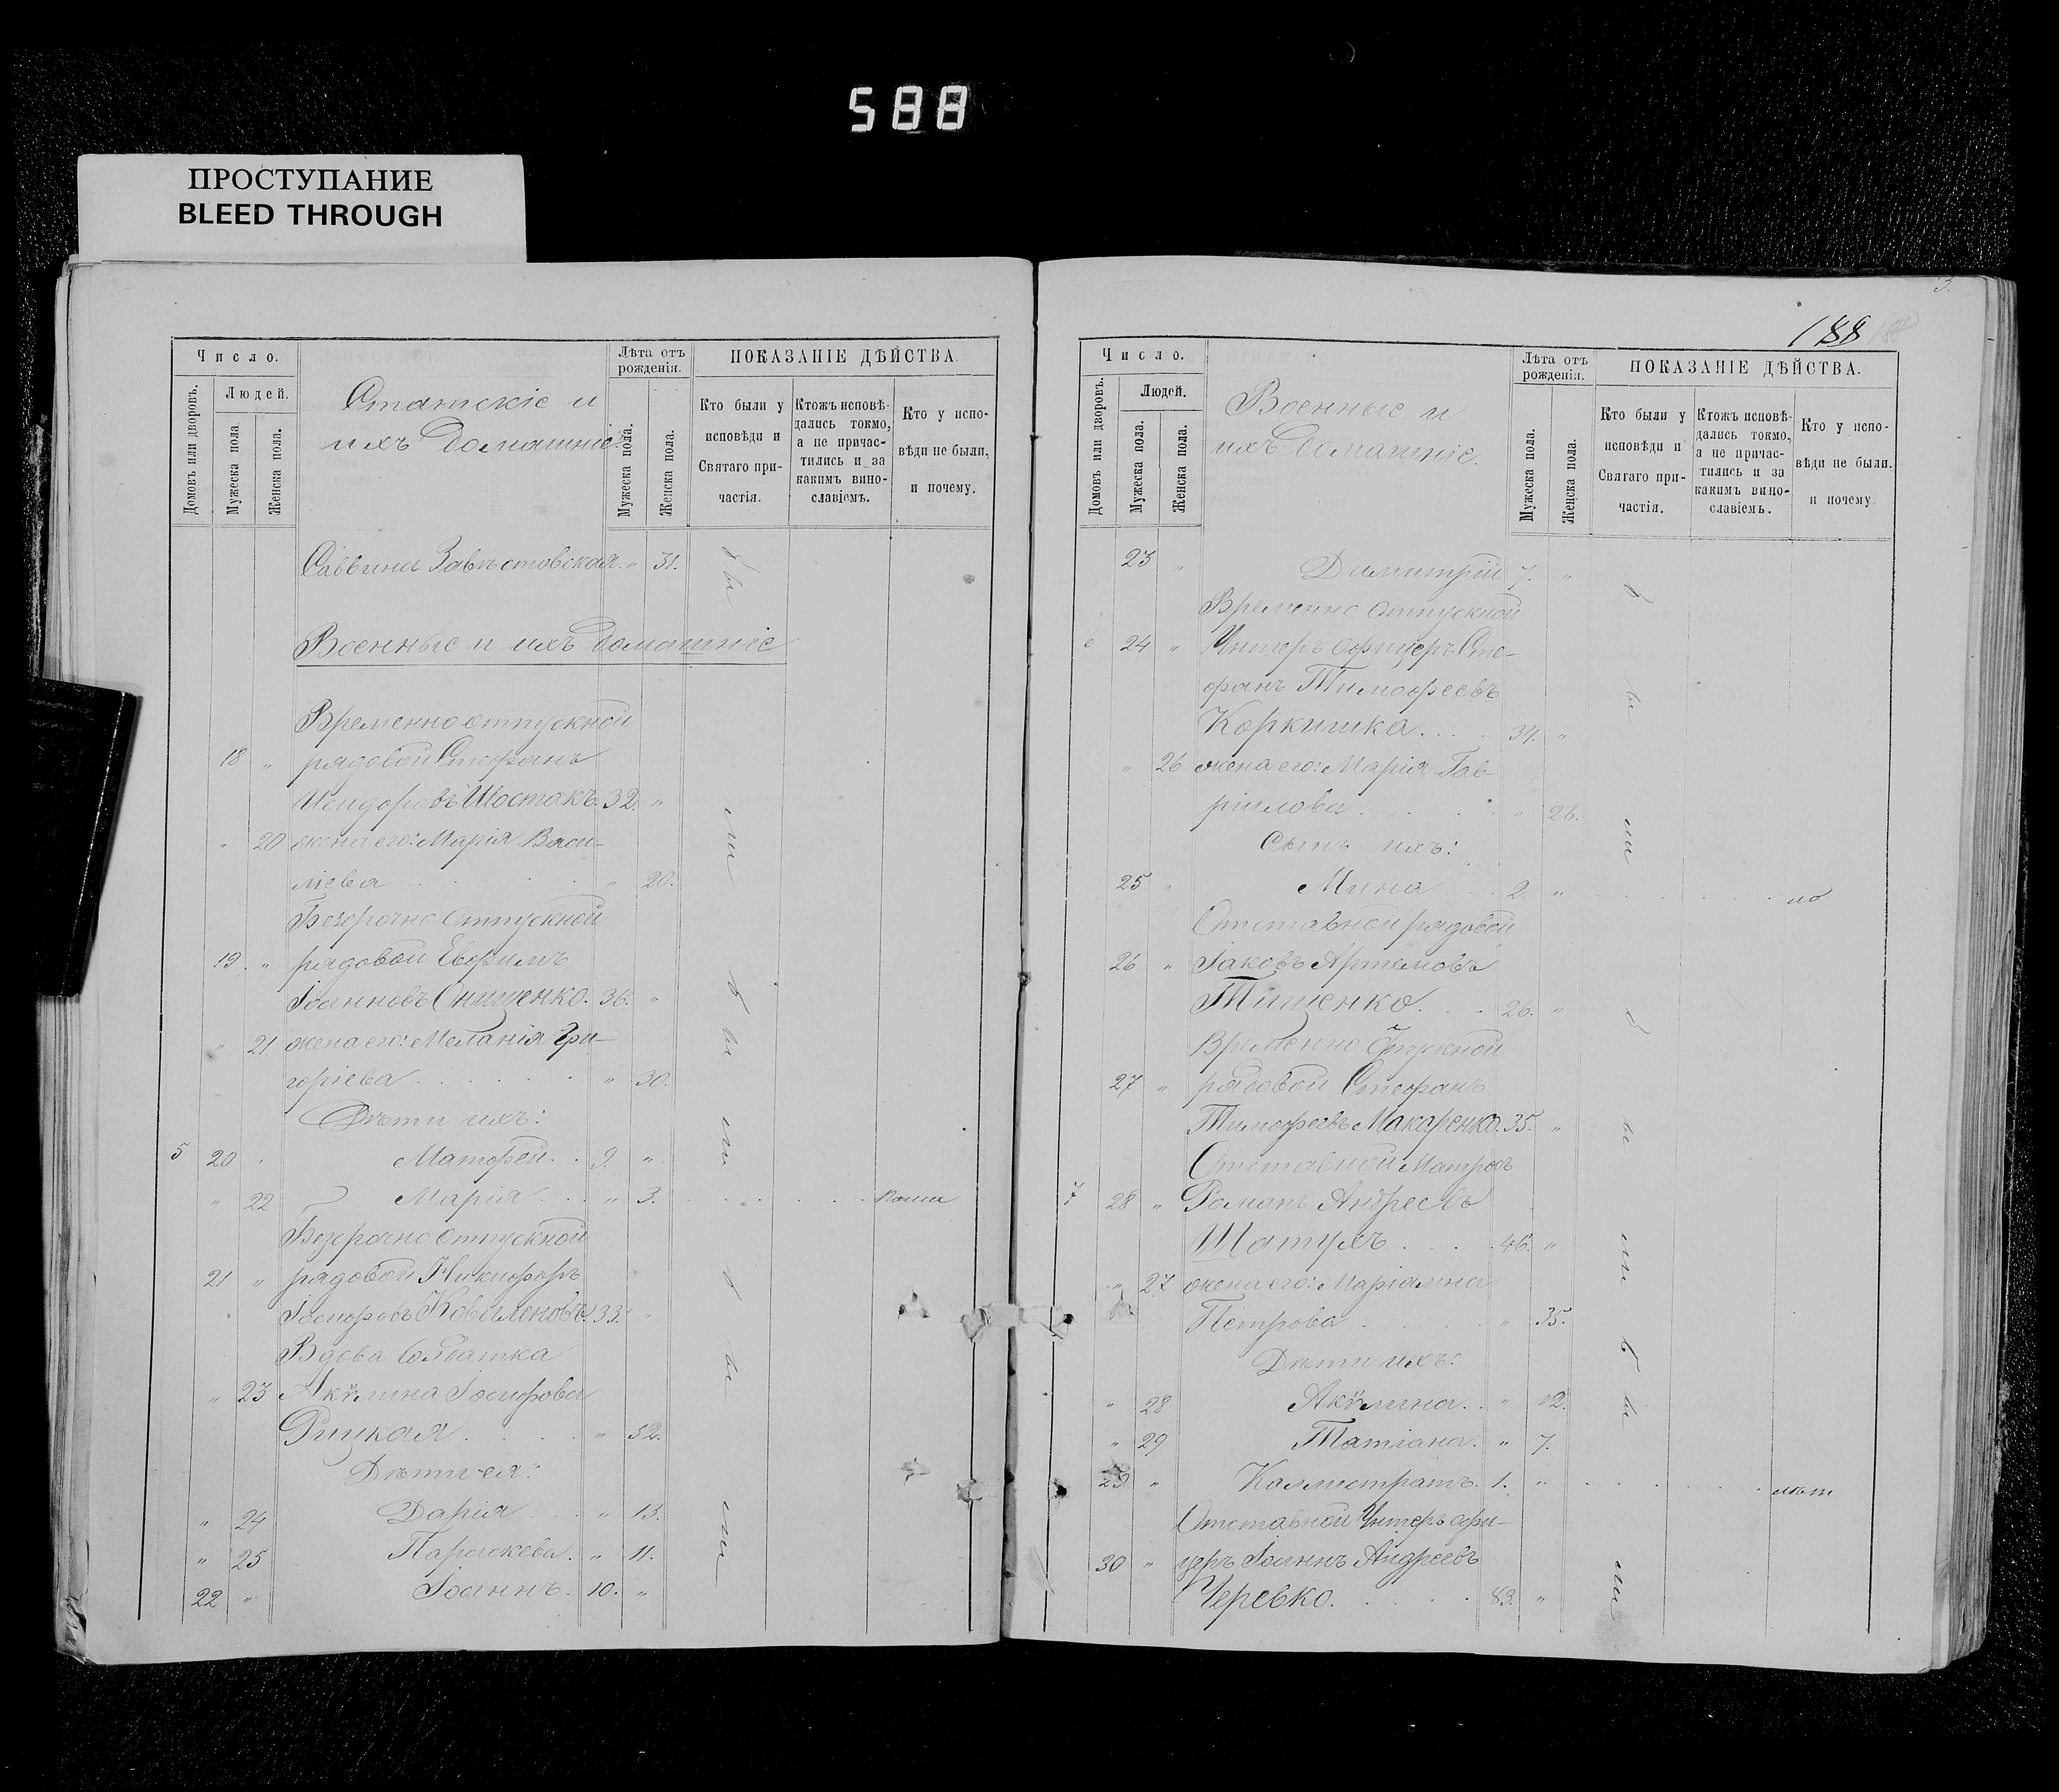 588
ПРОСТУПАНИЕ
BLEED THROUGH
Число.
Людей.
Домовъ или дворовъ.
Мужеска пола
Женска пола.
Статскіе и
ихъ домашніе.
Лѣта отъ рожденія.
Мужеска пола.
Женска пола.
ПОКАЗАНІЕ ДѢЙСТВА
Кто были у исповѣди и Святаго причастія.
Ктожъ исповѣдались токмо, а не причастились и за какимъ винославіемъ.
Кто у исповѣди не были, и почему.
Саввина 31.
Военные и ихъ домашніе
Временно отпускной
18 " рядовой Стефанъ
Исидоровъ Шостакъ. 32. "
" 20 жена его: Марія Васи-
ліева " 20.
Безсрочно Отпускной
19. " рядовой Евфимъ
Іоанновъ Онищенко. 36. "
" 21 жена его: Меланія Гри-
горіева " 30.
Дѣти ихъ:
5 20 " Матфей 9. "
" 22 Марія " 3.
Безсрочно отпускной
21 " рядовой Никифоръ
Іосифовъ 33. "
Вдова Солдатка
" 23 Акѵлина Іосифова
Рицкая " 52.
Дѣти ея:
" 24 Дарія " 13.
" 25 Параскева. " 11.
22 " Іоаннъ. 10. "
были были были
188
Число.
Людей.
Домовъ или дворовъ.
Мужеска пола.
Женска пола.
Военные и
ихъ домашніе.
Лѣта отъ рожденія.
Мужеска пола.
Женска пола.
ПОКАЗАНІЕ ДѢЙСТВА.
Кто были у исповѣди и Святаго причастія.
Ктожъ исповѣдались токмо, а не причастились и за какимъ винославіемъ.
Кто у исповѣди не были. и почему
23 " Димитрій 7. "
Временно Отпускной
6 24 " Унтеръ офицеръ Сте-
фанъ Тимофеевъ
Коркишка 34. "
" 26 жена его: Марія Гав-
риилова " 26.
Сынъ ихъ:
25 " Мина 2. "
Отставной рядовой
26 " Іаковъ Артемовъ
Тищенко. 26. "
Временно Отпускной
27 " рядовой Стефанъ
Тимофеевъ Макаренко. 35. "
Отставной Матросъ
7 28 " Романъ Андреевъ
Шатухъ 46. "
" 27 жена его: Маріамна
Петрова " 35.
Дѣти ихъ:
" 28 Акѵлина. " 12.
" 29 Татіана. " 7.
29 " Каллистратъ. 1. "
Отставной Унтеръ офи-
30 " церъ Іоаннъ Андреевъ
Черевко. 83. "
были были